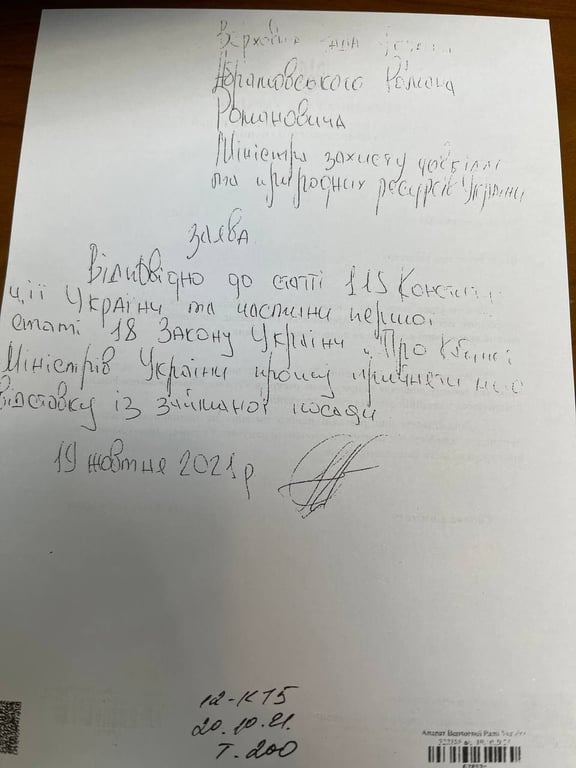 Верховна Рада України
Абрамовського Романа
Романовича
Міністра захисту довкілля
та природних ресурсів України
заява
Відповідно до статті 115 Консти
ції України та частини першої
статі 18 Закону України „Про
Міністрів України прошу прийняти мою
відставку із займаної посади
19 жовтня 2021р
12-К75
20.10.21.
Т.200
Апарат Верховної Ради